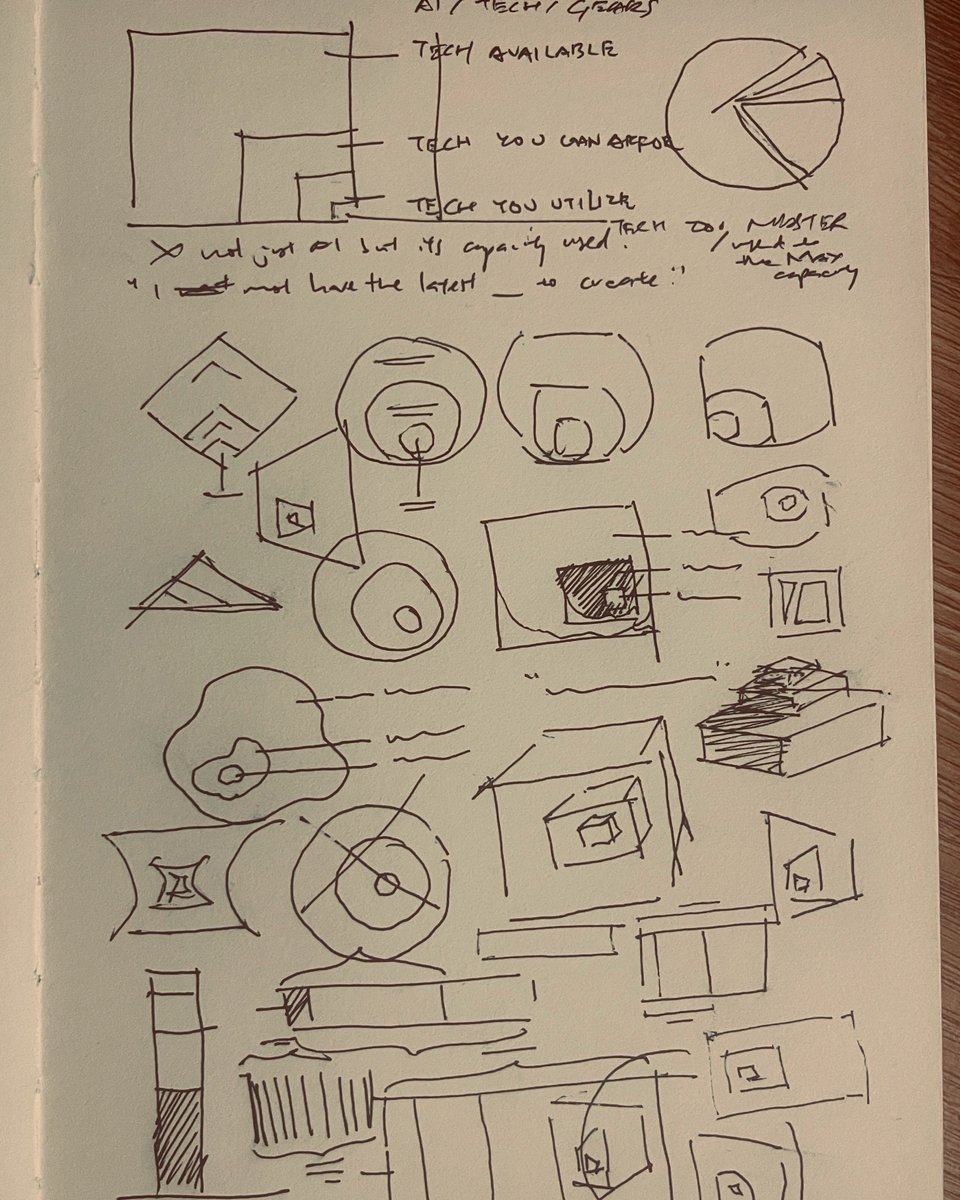 AI / TECH / GEARS
TECH AVAILABLE
TECH YOU CAN AFFOR
TECH YOU UTILIZE
TECH YOU MASTER
/ used to
the Max
capacity
not just AI but its capacity used.
"I not have the latest _ to create"